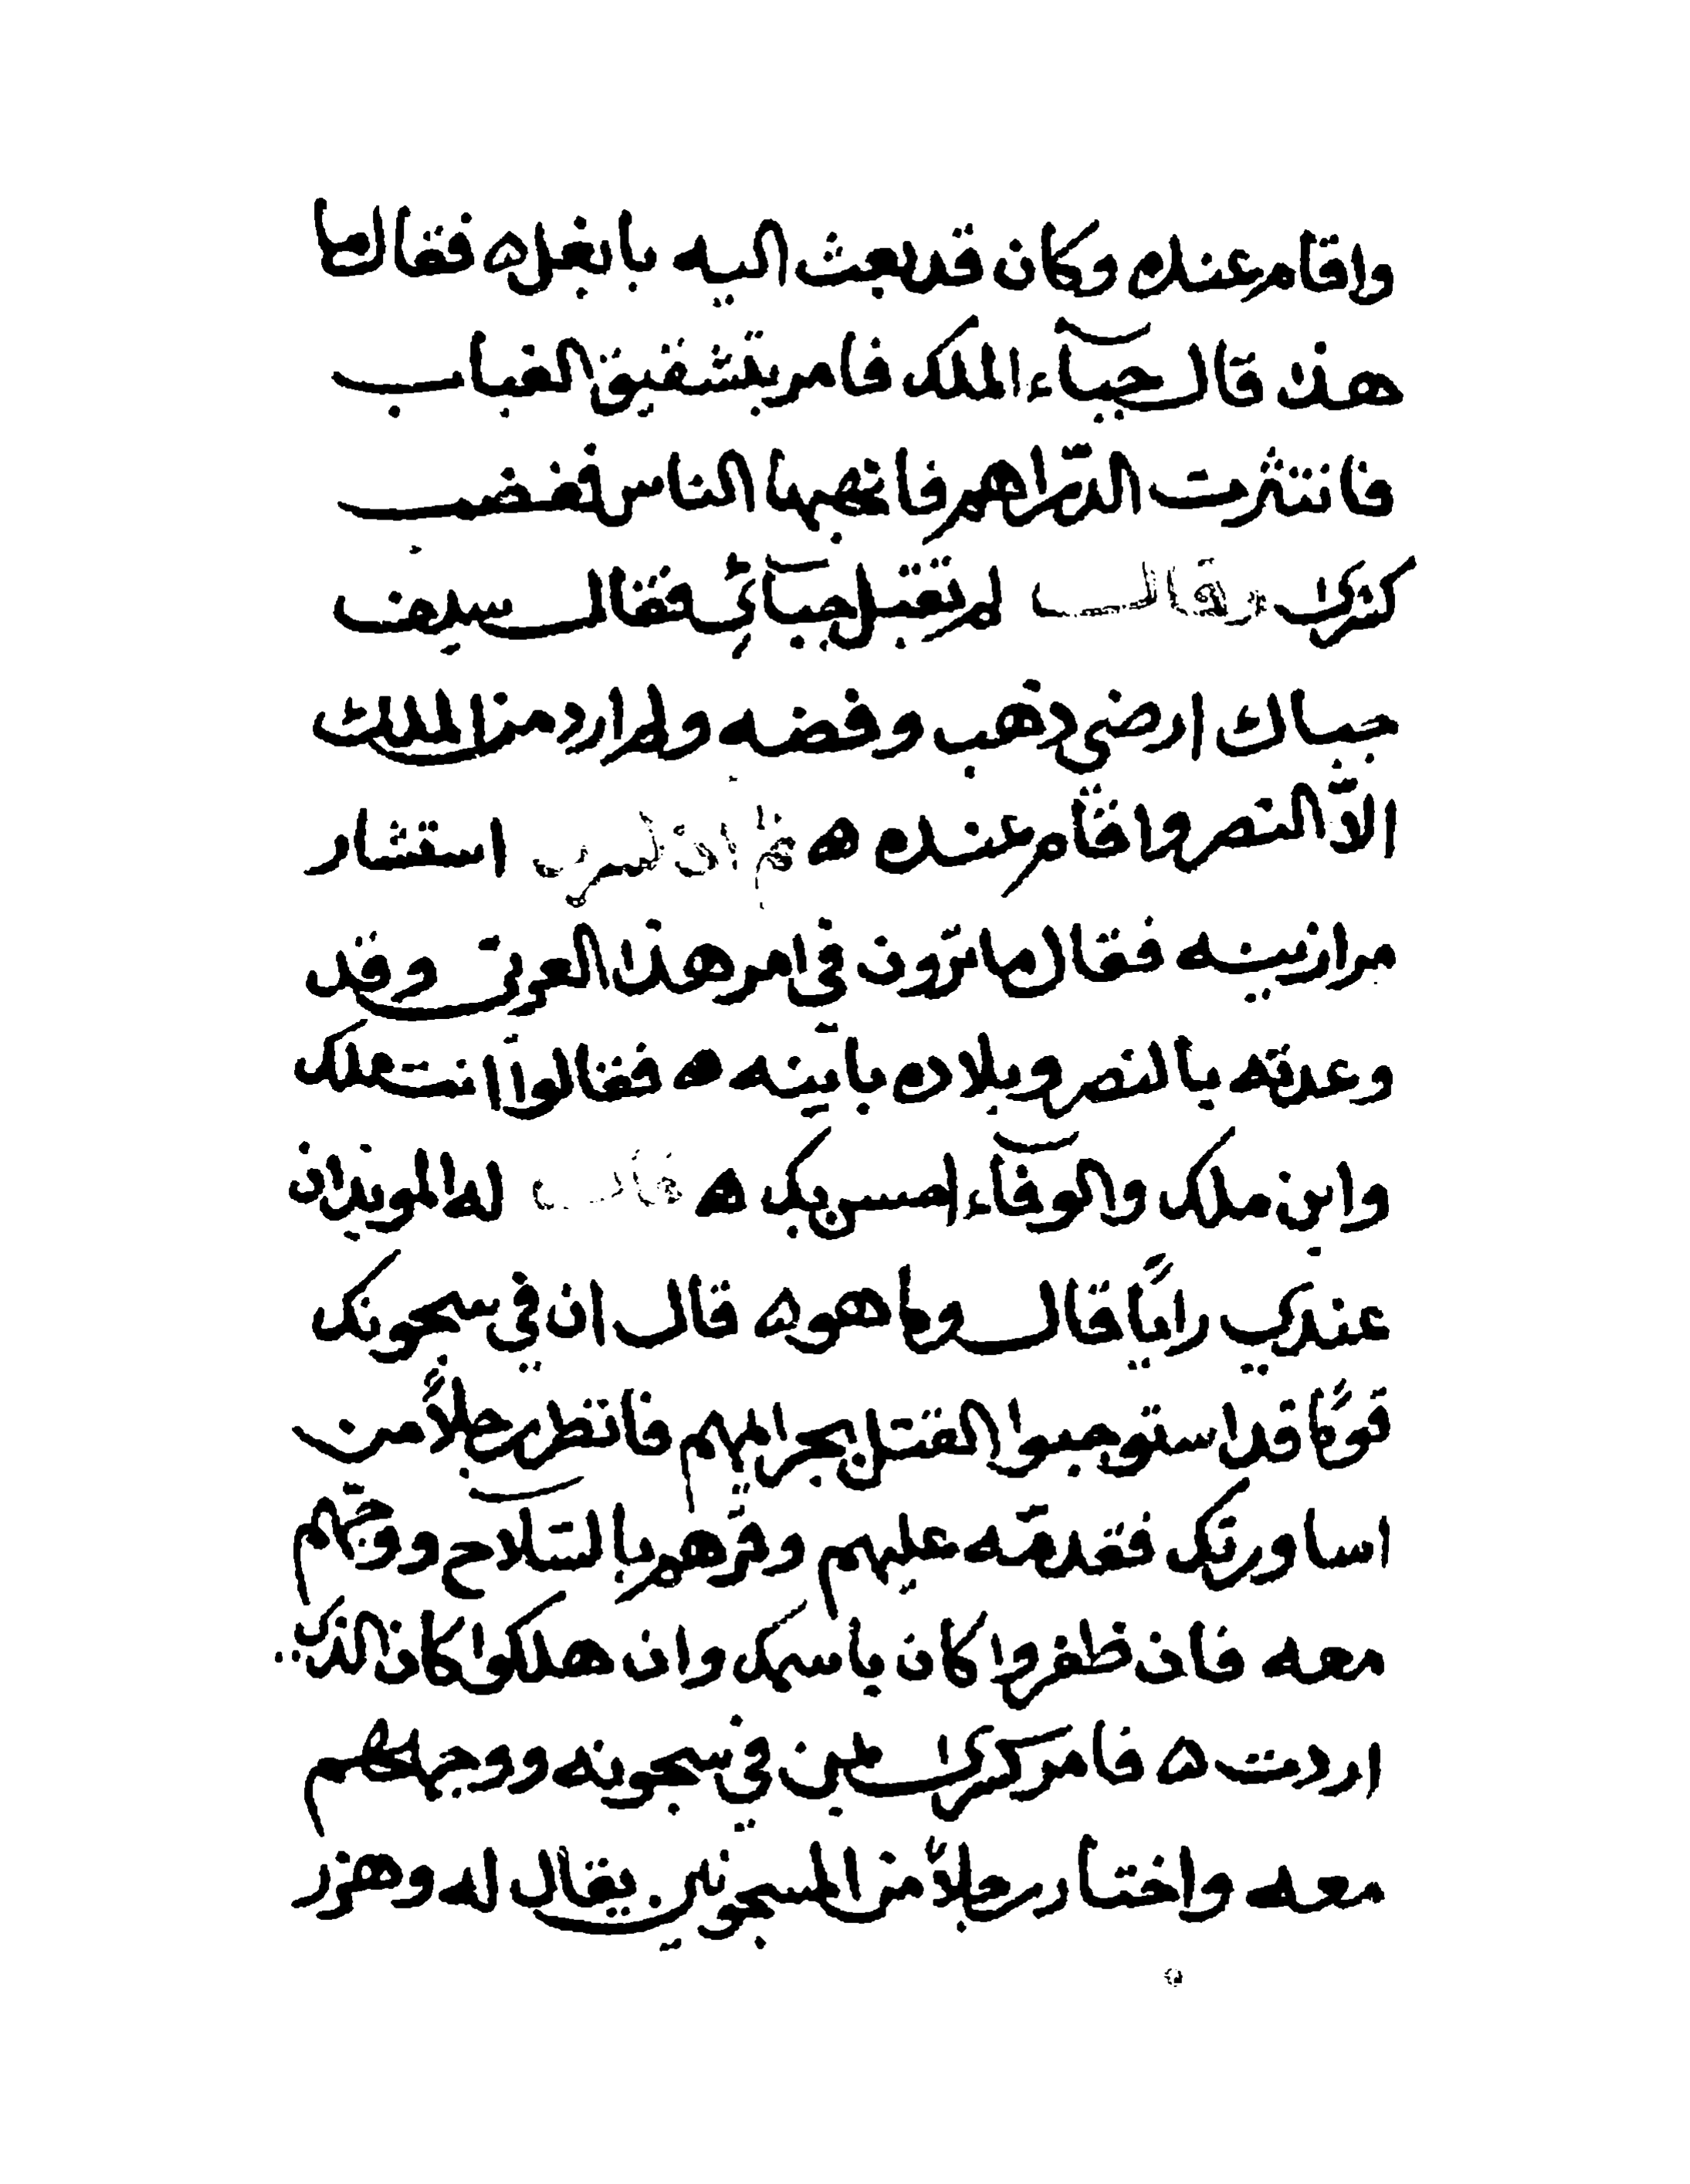 واقام عنده وكان قد بعث اليه بابغل ه فقال ما
هذا قال حباء الملك فامر بتشقيق الغباب
فانتثرت الدراهم فانتهبها الناس فغضب
كسرى وقال لم تقبل حبائي فقال سيف
جبال ارضي ذهب وفضه ولم ارد من الملك
الا النصر واقام عنده ه ثم ان كسرى استشار
مرازبيته فقال ما ترون في امر هذا العربي وقد
وعدته بالنصر وبلاده باينه ه فقالوا انت ملك
وابن ملك والوفاء امس بك ه قال له الموبذان
عندي رايا قال وما هو ه قال ان في سجونك
قوما قد استوجبوا القتل بجرايمهم فانظر رجلا من
اساورتك فقدمه عليهم وقوهم بالسلاح ووجههم
معه فان ظفروا كان باسمك وان هلكوا كان الذي
اردت ه فامر كسرى بمن في سجونه ووجههم
معه واختار رجلا من المسجونين يقال له وهرز